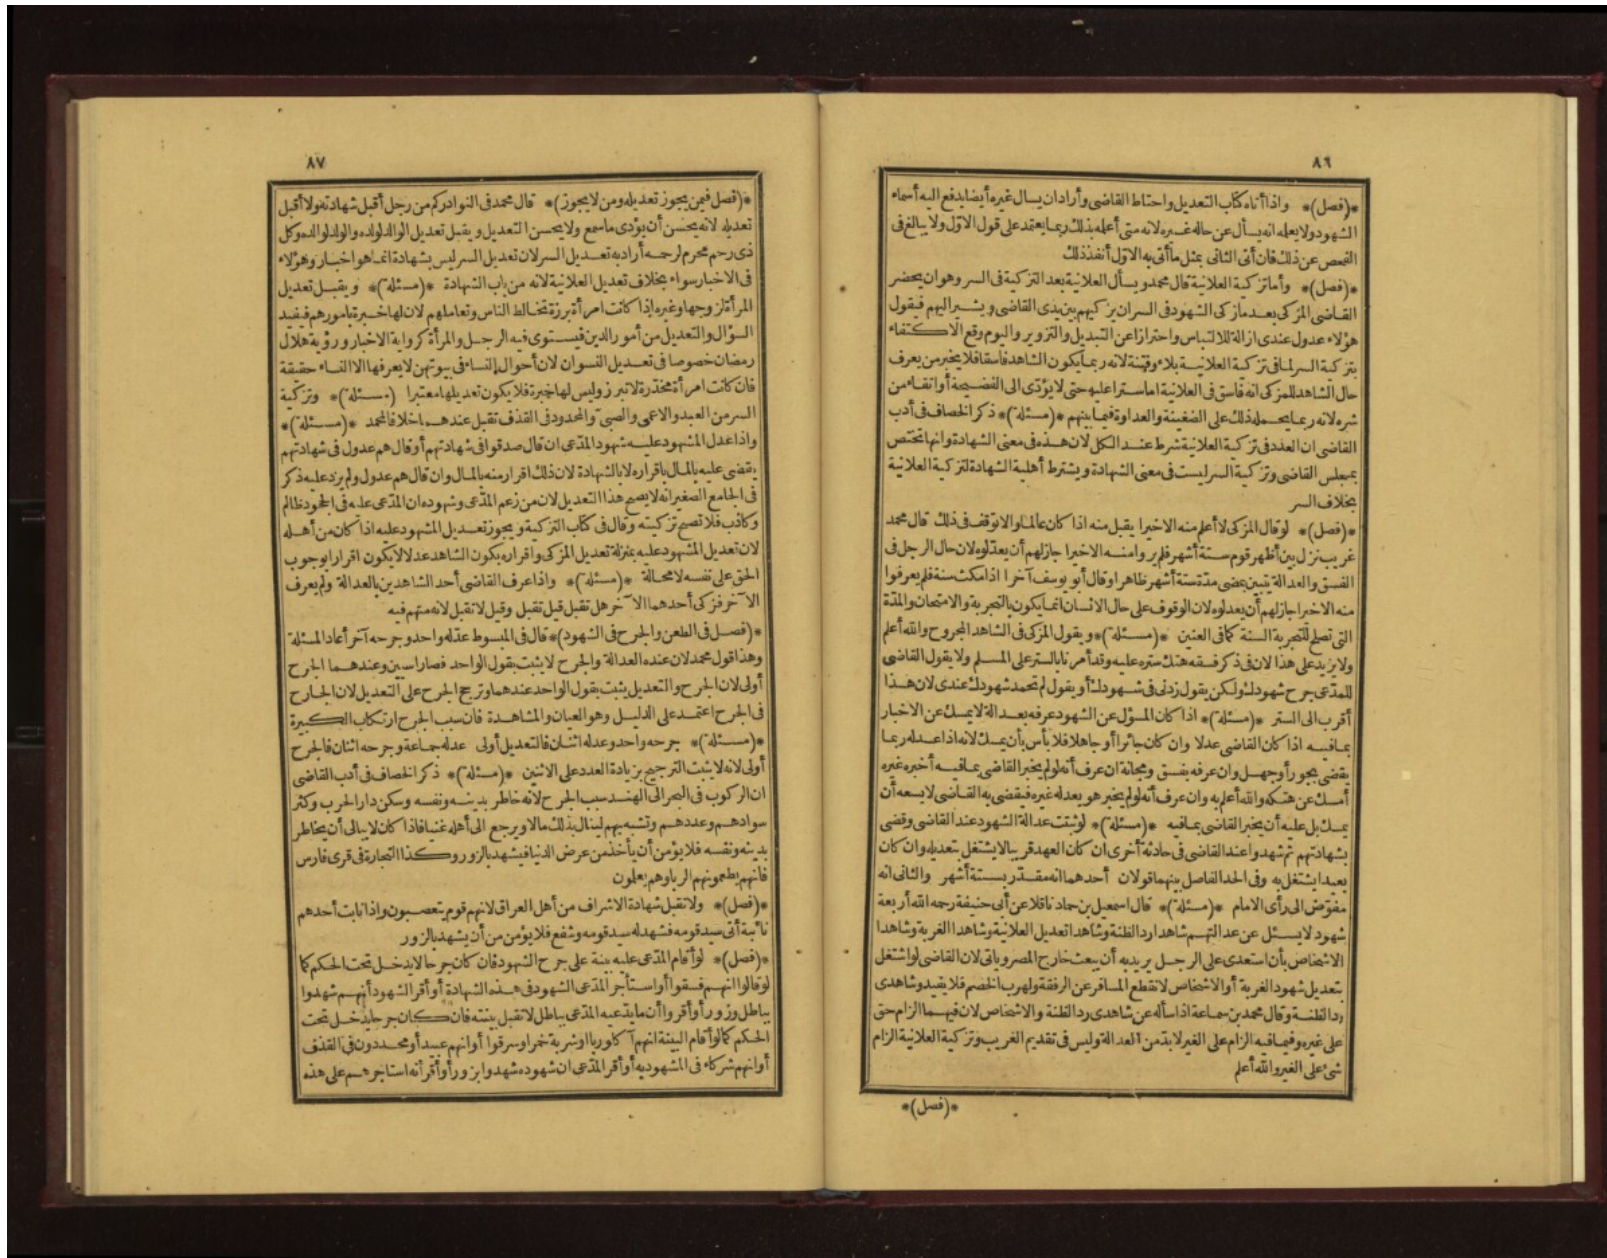 ٨٦
*(فصل)* واذا أتاه كتاب التعديل واحتاط القاضى وأراد ان يسال غيره أيضا يدفع اليه أسماء
الشهود ولا يعلمه انه يسأل عن حاله غيره لانه متى أعلمه بذلك ربما يعتمد على قول الاول ولا يبالغ فى
التفحص عن ذلك فان أتى الثانى بمثل ما أتى به الاول أنفذ ذلك
*(فصل)* وأما تزكية العلانية قال محمد ويسأل العلانية بعد التزكية فى السر وهو ان يحضر
القاضى المزكى بعد ما زكى الشهود فى السر ان يزكيهم بين يدى القاضى ويشير اليهم فيقول
هؤلاء عدول عندى ازالة للالتباس واحترازا عن التبديل والتزوير واليوم وقع الاكتفاء
بتزكية السر لما فى تزكية العلانية بلاء وفتنة لانه ربما يكون الشاهد فاسقا فلا يخبر من يعرف
حال الشاهد للمزكى انه فاسق فى العلانية اما سترا عليه حتى لا يؤدى الى الفضيحة أو اتقاء من
شره لانه ربما يحمله ذلك على الضغينة والعداوة فيما بينهم *(مسئلة)* ذكر الخصاف فى أدب
القاضى ان العدد فى تزكية العلانية شرط عند الكل لان هذه فى معنى الشهادة وانها تختص
بمجلس القاضى وتزكية السر ليست فى معنى الشهادة ويشترط أهلية الشهادة لتزكية العلانية
بخلاف السر
*(فصل)* لو قال المزكى لا أعلم منه الا خيرا يقبل منه اذا كان عالما والا توقف فى ذلك قال محمد
غريب نزل بين أظهر قوم ستة أشهر فلم يروا منه الا خيرا جاز لهم أن يعدلوه لان حال الرجل فى
الفسق والعدالة يتبين بمضى مدة ستة أشهر ظاهرا وقال أبو يوسف آخرا اذا مكث سنة فلم يعرفوا
منه الا خيرا جاز لهم أن يعدلوه لان الوقوف على حال الانسان انما يكون بالتجربة والامتحان والمدة
التى تصلح للتجربة السنة كما فى العنين *(مسئلة)* ويقول المزكى فى الشاهد المجروح والله أعلم
ولا يزيد على هذا لان فى ذكر فسقه هتك ستره عليه وقد أمرنا بالستر على المسلم ولا يقول القاضى
للمدعى جرح شهودك ولكن يقول زدنى فى شهودك أو يقول لم تحمد شهودك عندى لان هذا
أقرب الى الستر *(مسئلة)* اذا كان المسؤل عن الشهود عرفه بعدالة لا يمسك عن الاخبار
بما فيه اذا كان القاضى عدلا وان كان جائرا أو جاهلا فلا بأس بأن يمسك لانه اذا عدله ربما
يقضى بجور أو جهل وان عرفه بفسق ومجانة ان عرف أنه لو لم يخبر القاضى بما فيه أخبره غيره
أمسك عن هتكه والله أعلم به وان عرف أنه لو لم يخبر هو يعدله غيره فيقضى به القاضى لا يسعه أن
يمسك بل عليه أن يخبر القاضى بما فيه *(مسئلة)* لو ثبتت عدالة الشهود عند القاضى وقضى
بشهادتهم ثم شهدوا عند القاضى فى حادثة أخرى ان كان العهد قريبا لا يشتغل بتعديله وان كان
بعيدا يشتغل به وفى الحد الفاصل بينهما قولان أحدهما انه مقدر بستة أشهر والثانى انه
مفوض الى رأى الامام *(مسئلة)* قال اسمعيل بن حماد ناقلا عن أبى حنيفة رحمه الله أربعة
شهود لا يسئل عن عدالتهم شاهدا رد الظنة وشاهدا تعديل العلانية وشاهدا الغربة وشاهدا
الاشخاص بأن استعدى على الرجل يريد به أن يبعث خارج المصر وياتى لان القاضى لو اشتغل
بتعديل شهود الغربة أو الاشخاص لانقطع المسافر عن الرفقة ولهرب الخصم فلا يفيد وشاهدى
رد الظنة وقال محمد بن سماعة اذا سأله عن شاهدى رد الظنة والاشخاص لان فيهما الزام حق
على غيره وفيما فيه الزام على الغير لا بد من العدالة وليس فى تقديم الغريب وتزكية العلانية الزام
شئ على الغير والله أعلم
*(فصل)*
٨٧
*(فصل فيمن يجوز تعديله ومن لا يجوز)* قال محمد فى النوادر كم من رجل أقبل شهادته ولا أقبل
تعديله لانه يحسن أن يؤدى ما سمع ولا يحسن التعديل ويقبل تعديل الوالد لولده والولد لوالده وكل
ذى رحم محرم لرحمه أراد به تعديل السر لان تعديل السر ليس بشهادة انما هو اخبار وهؤلاء
فى الاخبار سواء بخلاف تعديل العلانية لانه من باب الشهادة *(مسئلة)* ويقبل تعديل
المرأة لزوجها وغيره اذا كانت امرأة برزة تخالط الناس وتعاملهم لان لها خبرة بامورهم فيفيد
السؤال والتعديل من أمور الدين فيستوى فيه الرجل والمرأة كرواية الاخبار ورؤية هلال
رمضان خصوصا فى تعديل النسوان لان أحوال النساء فى بيوتهن لا يعرفها الا النساء حقيقة
فان كانت امرأة مخدرة لا تبرز وليس لها خبرة فلا يكون تعديلها معتبرا (مسئلة)* وتزكية
السر من العبد والاعمى والصبى والمحدود فى القذف تقبل عندهما خلافا لمحمد *(مسئلة)*
واذا عدل المشهود عليه شهود المدعى ان قال صدقوا فى شهادتهم أو قال هم عدول فى شهادتهم
يقضى عليه بالمال باقراره لا بالشهادة لان ذلك اقرار منه بالمال وان قال هم عدول ولم يزد عليه ذكر
فى الجامع الصغير انه لا يصح هذا التعديل لان من زعم المدعى وشهوده ان المدعى عليه فى الجحود ظالم
وكاذب فلا تصح تزكيته وقال فى كتاب التزكية ويجوز تعديل المشهود عليه اذا كان من أهله
لان تعديل المشهود عليه بمنزلة تعديل المزكى واقراره بكون الشاهد عدلا لا يكون اقرارا بوجوب
الحق على نفسه لا محالة *(مسئلة)* واذا عرف القاضى أحد الشاهدين بالعدالة ولم يعرف
الآخر فزكى أحدهما الآخر هل تقبل قيل تقبل وقيل لا تقبل لانه متهم فيه
*(فصل فى الطعن والجرح فى الشهود)* قال فى المبسوط عدله واحد وجرحه آخر أعاد المسئلة
وهذا قول محمد لان عنده العدالة والجرح لا يثبت بقول الواحد فصارا سيين وعندهما الجرح
أولى لان الجرح والتعديل يثبت بقول الواحد عندهما وترجح الجرح على التعديل لان الجارح
فى الجرح اعتمد على الدليل وهو العيان والمشاهدة فان سبب الجرح ارتكاب الكبيرة
*(مسئلة)* جرحه واحد وعدله اثنان فالتعديل أولى عدله جماعة وجرحه اثنان فالجرح
أولى لانه لا يثبت الترجيح بزيادة العدد على الاثنين *(مسئلة)* ذكر الخصاف فى أدب القاضى
ان الركوب فى البحر الى الهند سبب الجرح لانه خاطر بدينه ونفسه وسكن دار الحرب وكثر
سوادهم وعددهم وتشبه بهم لينال بذلك مالا ويرجع الى أهله غنيا فاذا كان لا يبالى أن يخاطر
بدينه ونفسه فلا يؤمن أن يأخذ من عرض الدنيا فيشهد بالزور وكذا التجارة فى قرى فارس
فانهم يطعمونهم الربا وهم يعلمون
*(فصل)* ولا تقبل شهادة الاشراف من أهل العراق لانهم قوم يتعصبون واذا نابت أحدهم
نائبة أتى سيد قومه فشهد له سيد قومه وشفع فلا يؤمن من أن يشهد بالزور
*(فصل)* لو أقام المدعى عليه بينة على جرح الشهود فان كان جرحا لا يدخل تحت الحكم كما
لو قالوا انهم فسقوا أو استأجر المدعى الشهود فى هذه الشهادة أو أقر الشهود أنهم شهدوا
بباطل وزور أو أقروا أن ما يدعيه المدعى بباطل لا تقبل بينته فان كان جرحا يدخل تحت
الحكم كما لو أقام البينة انهم آكلو ربا أو شربة خمر أو سرقوا أو انهم عبيد أو محدودون فى القذف
أو انهم شركاء فى المشهود به أو أقر المدعى ان شهوده شهدوا بزور أو أقر أنه استاجرهم على هذه